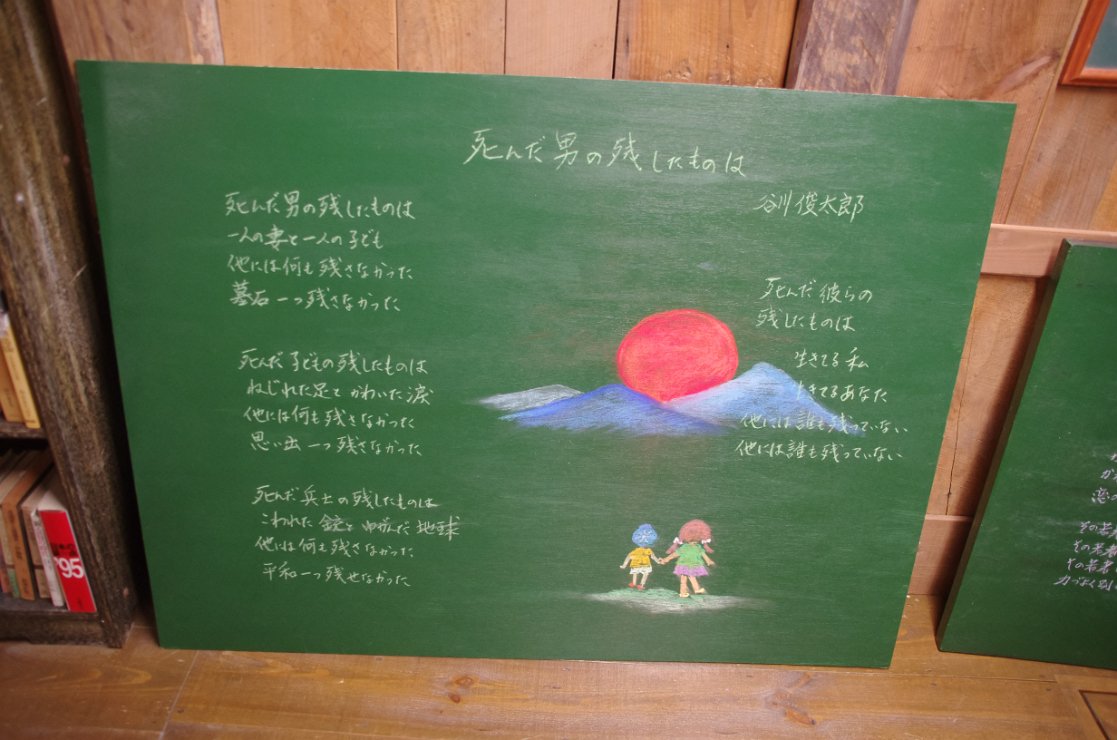 死んだ男の残したものは
谷川俊太郎
死んだ男の残したものは
一人の妻と一人の子ども
他には何も残さなかった
墓石一つ残さなかった
死んだ子どもの残したものは
ねじれた足とかわいた涙
他には何も残さなかった
思い出一つ残さなかった
死んだ兵士の残したものは
こわれた銃とゆがんだ地球
他には何も残さなかった
平和一つ残せなかった
死んだ彼らの
残したものは
生きてる私
生きてるあなた
他には誰も残っていない
他には誰も残っていない
その若者
力づよく
95